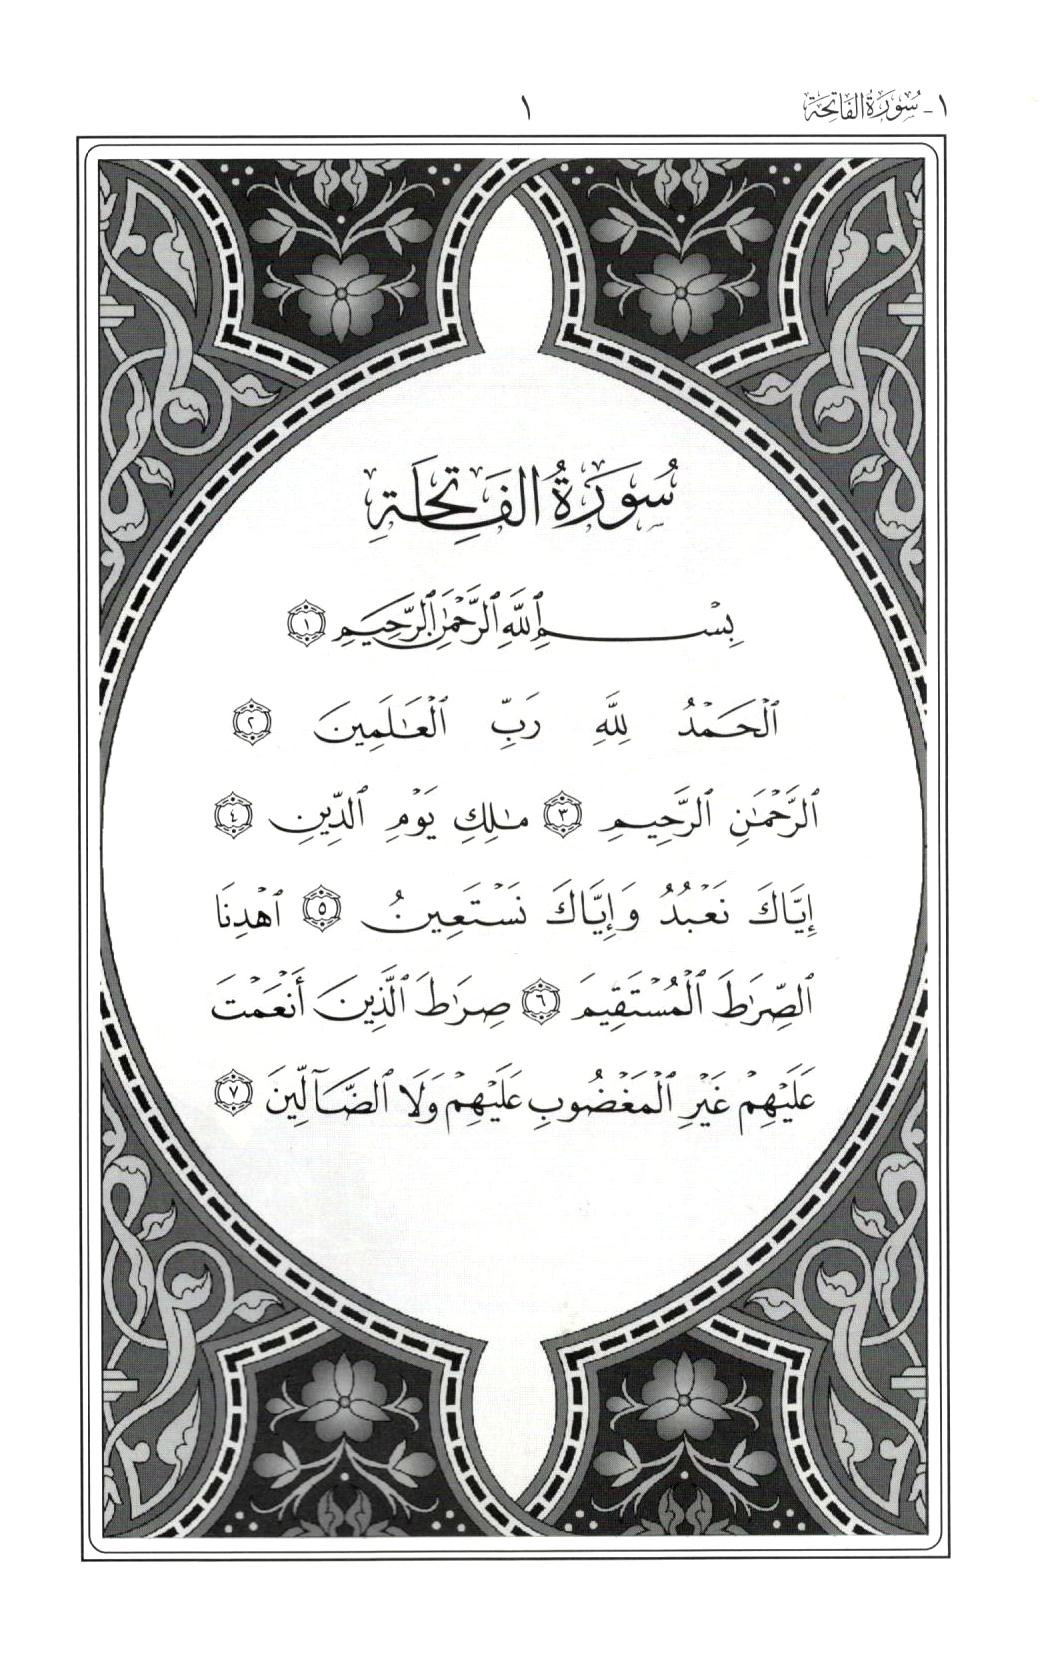 ١- سُورَةُ الفَاتِحَة
١
سُورَةُ الفَاتِحَةِ
بِسْمِ ٱللَّهِ ٱلرَّحْمَٰنِ ٱلرَّحِيمِ ١
ٱلْحَمْدُ لِلَّهِ رَبِّ ٱلْعَٰلَمِينَ ٢
ٱلرَّحْمَٰنِ ٱلرَّحِيمِ ٣ مَٰلِكِ يَوْمِ ٱلدِّينِ ٤
إِيَّاكَ نَعْبُدُ وَإِيَّاكَ نَسْتَعِينُ ٥ ٱهْدِنَا
ٱلصِّرَٰطَ ٱلْمُسْتَقِيمَ ٦ صِرَٰطَ ٱلَّذِينَ أَنْعَمْتَ
عَلَيْهِمْ غَيْرِ ٱلْمَغْضُوبِ عَلَيْهِمْ وَلَا ٱلضَّآلِّينَ ٧